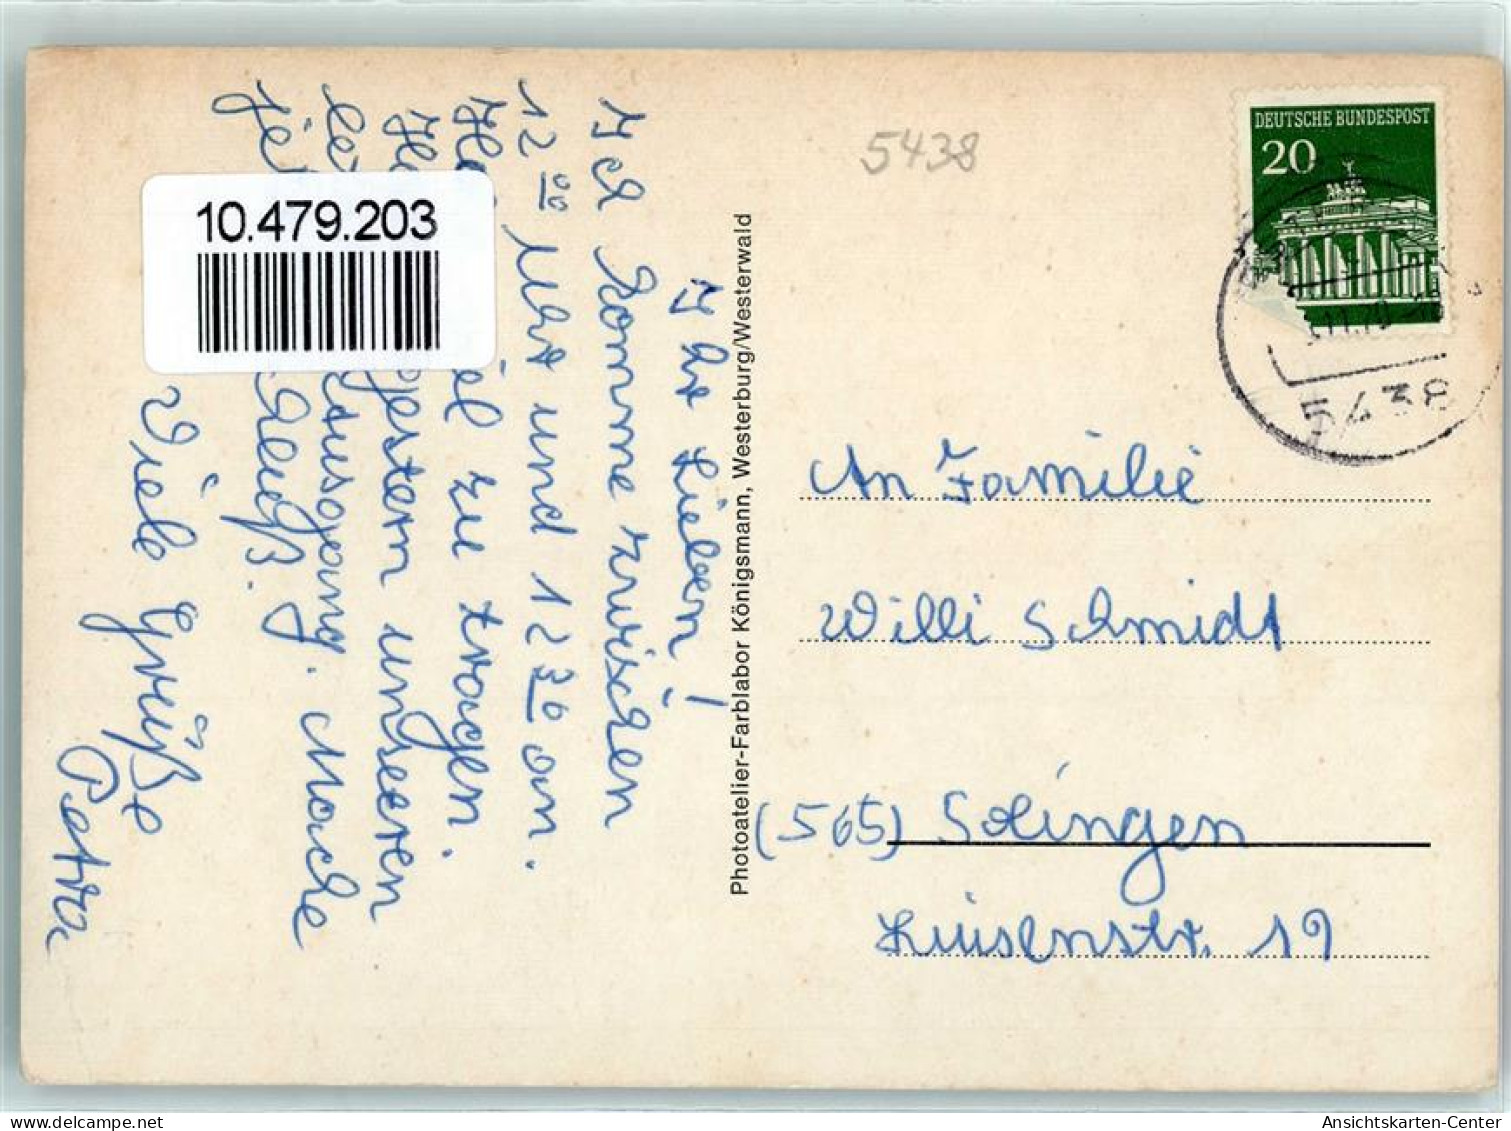 Ihr Lieben!
Ich komme zwischen
12 00 Uhr und 12 30 an.
zu tragen.
gestern unseren
Ausgang. Mache
Viele Grüße
Petra
10.479.203
Photoatelier-Farblabor Königsmann, Westerburg/Westerwald
5438
DEUTSCHE BUNDESPOST
20
5438
An Familie
Willi Schmidt
(565) Solingen
Luisenstr. 19
oldthing.net
Ansichtskarten-Center